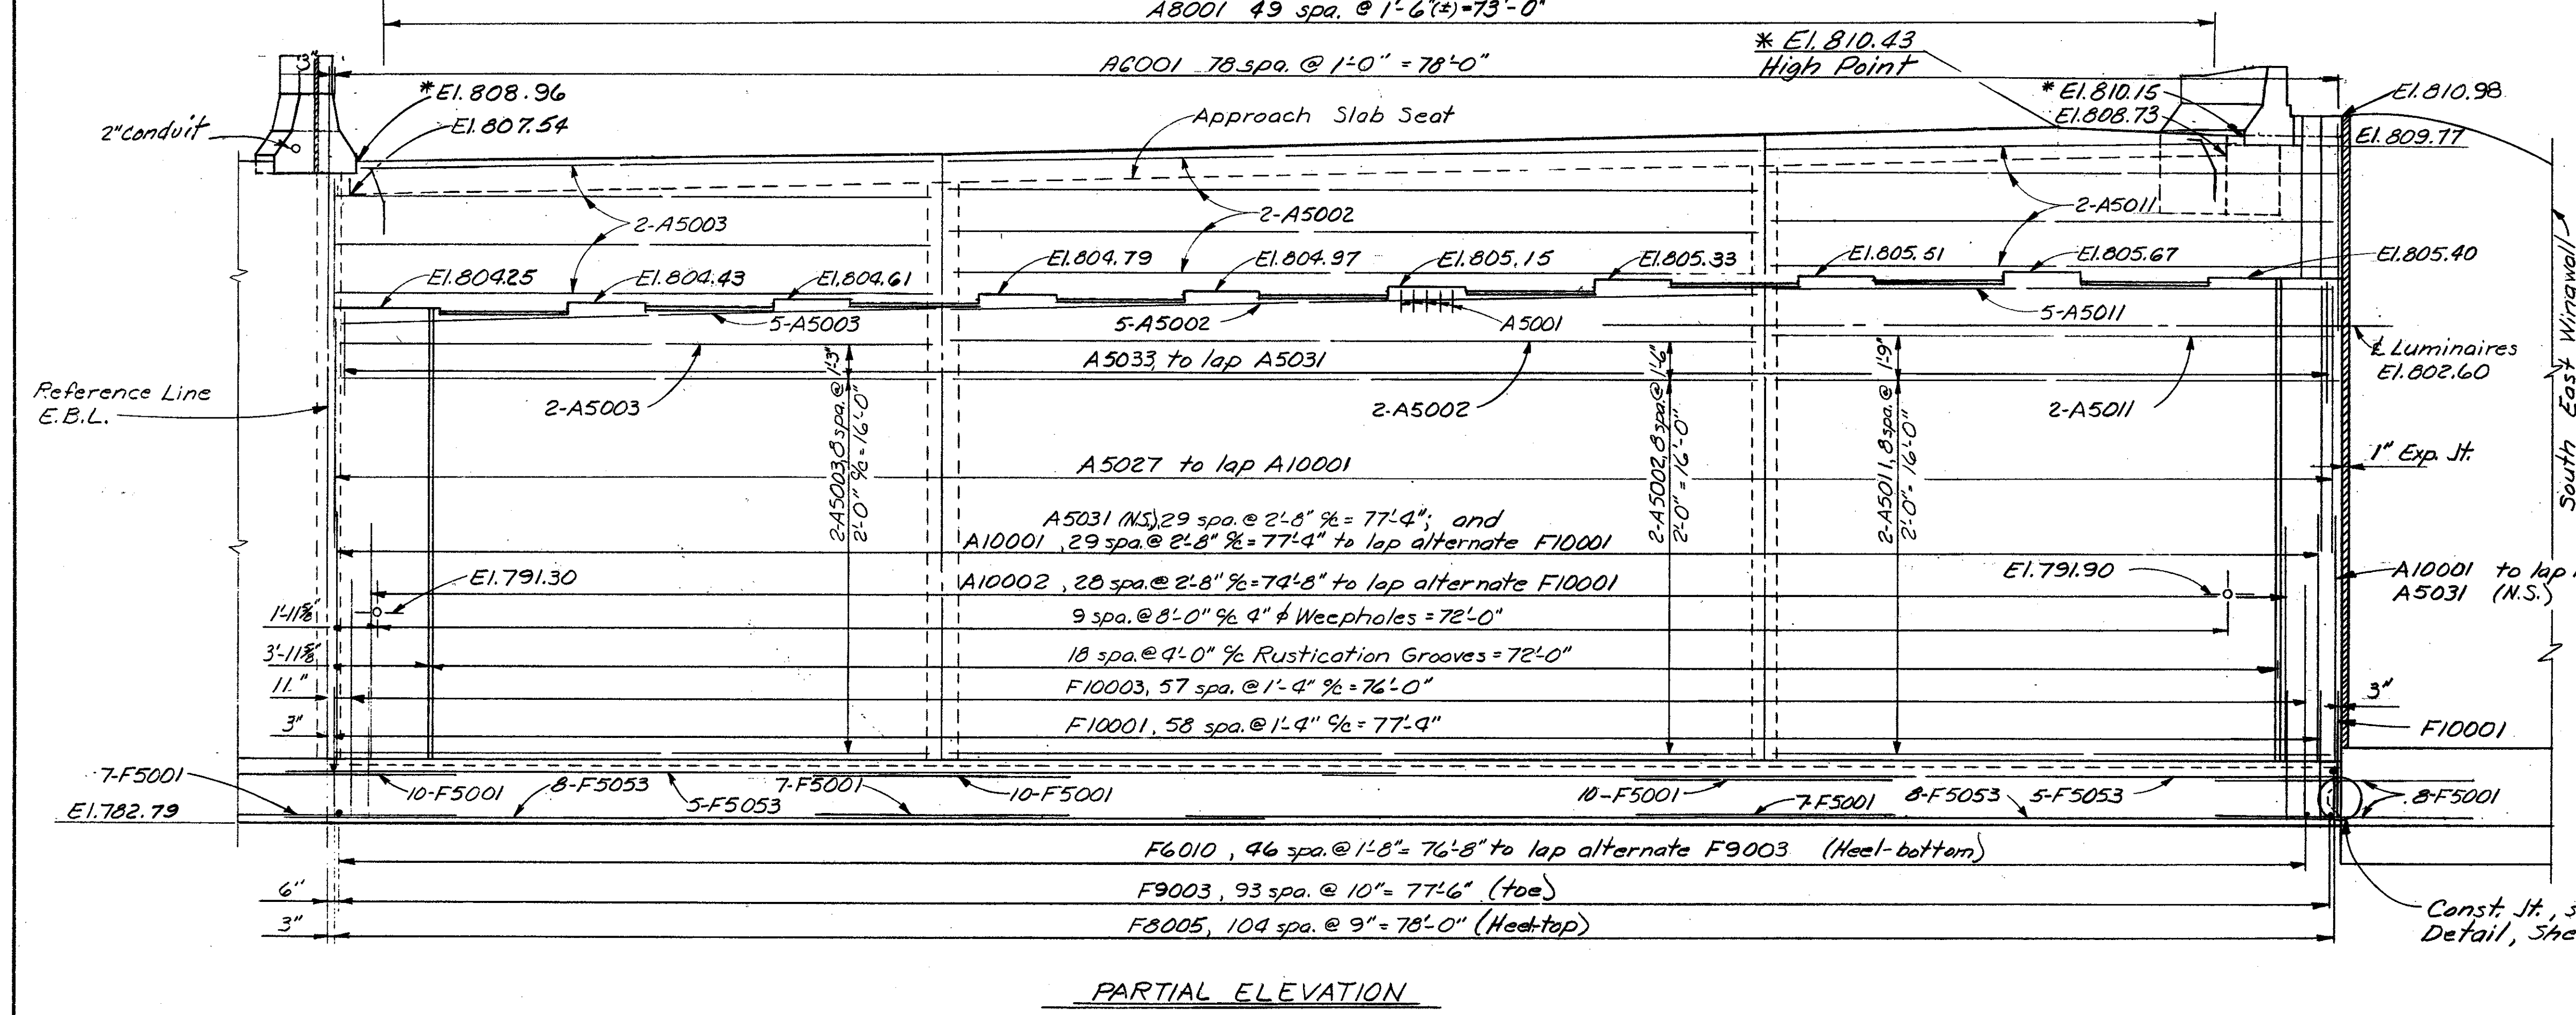 A8001 49 spa. @ 1'-6"(±)=73'-0"
3"
A6001 78 spa. @ 1'-0" = 78'-0"
* El. 810.43
High Point
* El. 808.96
El. 807.54
2" Conduit
Approach Slab Seat
* El. 810.15
El. 808.73
El. 810.98
El. 809.77
2-A5003
2-A5002
2-A5011
El. 804.25
El. 804.43
El. 804.61
El. 804.79
El. 804.97
El. 805.15
El. 805.33
El. 805.51
El. 805.67
El. 805.40
5-A5003
5-A5002
A5001
5-A5011
A5033, to lap A5031
℄ Luminaires
El. 802.60
Reference Line
E.B.L.
2-A5003
2-A5002
2-A5011
2-A5003, 8 spa. @ 1'-3"
2'-0" c/c = 16'-0"
2-A5002, 8 spa. @ 1'-6"
2'-0" = 16'-0"
2-A5011, 8 spa. @ 1'-9"
2'-0" = 16'-0"
South East Wingwall
1" Exp. Jt.
A5027 to lap A10001
A5031 (N.S.), 29 spa. @ 2'-8" c/c = 77'-4"; and
A10001, 29 spa. @ 2'-8" c/c = 77'-4" to lap alternate F10001
El. 791.30
A10002, 28 spa. @ 2'-8" c/c = 74'-8" to lap alternate F10001
El. 791.90
A10001 to lap
A5031 (N.S.)
1'-11⅝"
9 spa. @ 8'-0" c/c 4" ϕ Weepholes = 72'-0"
3'-11⅝"
18 spa. @ 4'-0" c/c Rustication Grooves = 72'-0"
11"
F10003, 57 spa. @ 1'-4" c/c = 76'-0"
3"
3"
F10001, 58 spa. @ 1'-4" c/c = 77'-4"
F10001
7-F5001
10-F5001
8-F5053
5-F5053
7-F5001
10-F5001
10-F5001
7-F5001
8-F5053
5-F5053
8-F5001
El. 782.79
F6010, 46 spa. @ 1'-8" = 76'-8" to lap alternate F9003 (Heel-bottom)
6"
F9003, 93 spa. @ 10" = 77'-6" (toe)
3"
F8005, 104 spa. @ 9" = 78'-0" (Heel-top)
Const. Jt.,
Detail,
PARTIAL ELEVATION